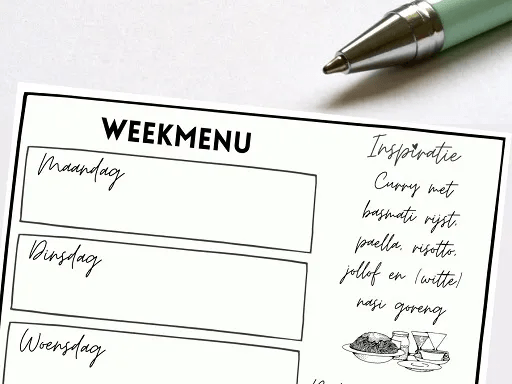 WEEKMENU
Maandag
Dinsdag
Woensdag
Inspiratie
Curry met
basmati rijst,
paella, risotto,
jollof en (witte)
nasi goreng